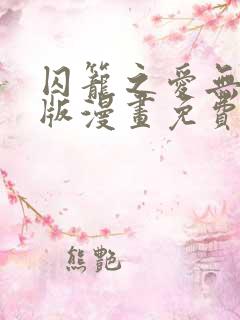 囚籠之愛無
版漫畫免費
熊艷